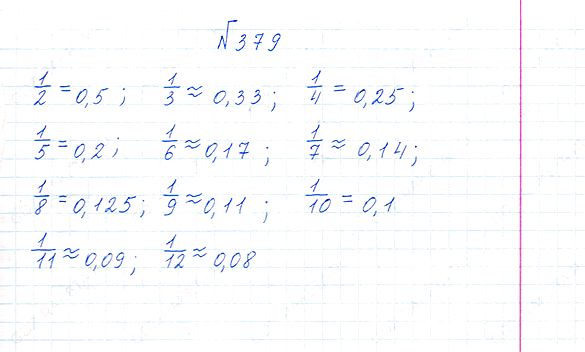 №379
1/2 = 0,5 ; 1/3 ≈ 0,33 ; 1/4 = 0,25 ;
1/5 = 0,2 ; 1/6 ≈ 0,17 ; 1/7 ≈ 0,14 ;
1/8 = 0,125 ; 1/9 ≈ 0,11 ; 1/10 = 0,1
1/11 ≈ 0,09 ; 1/12 ≈ 0,08